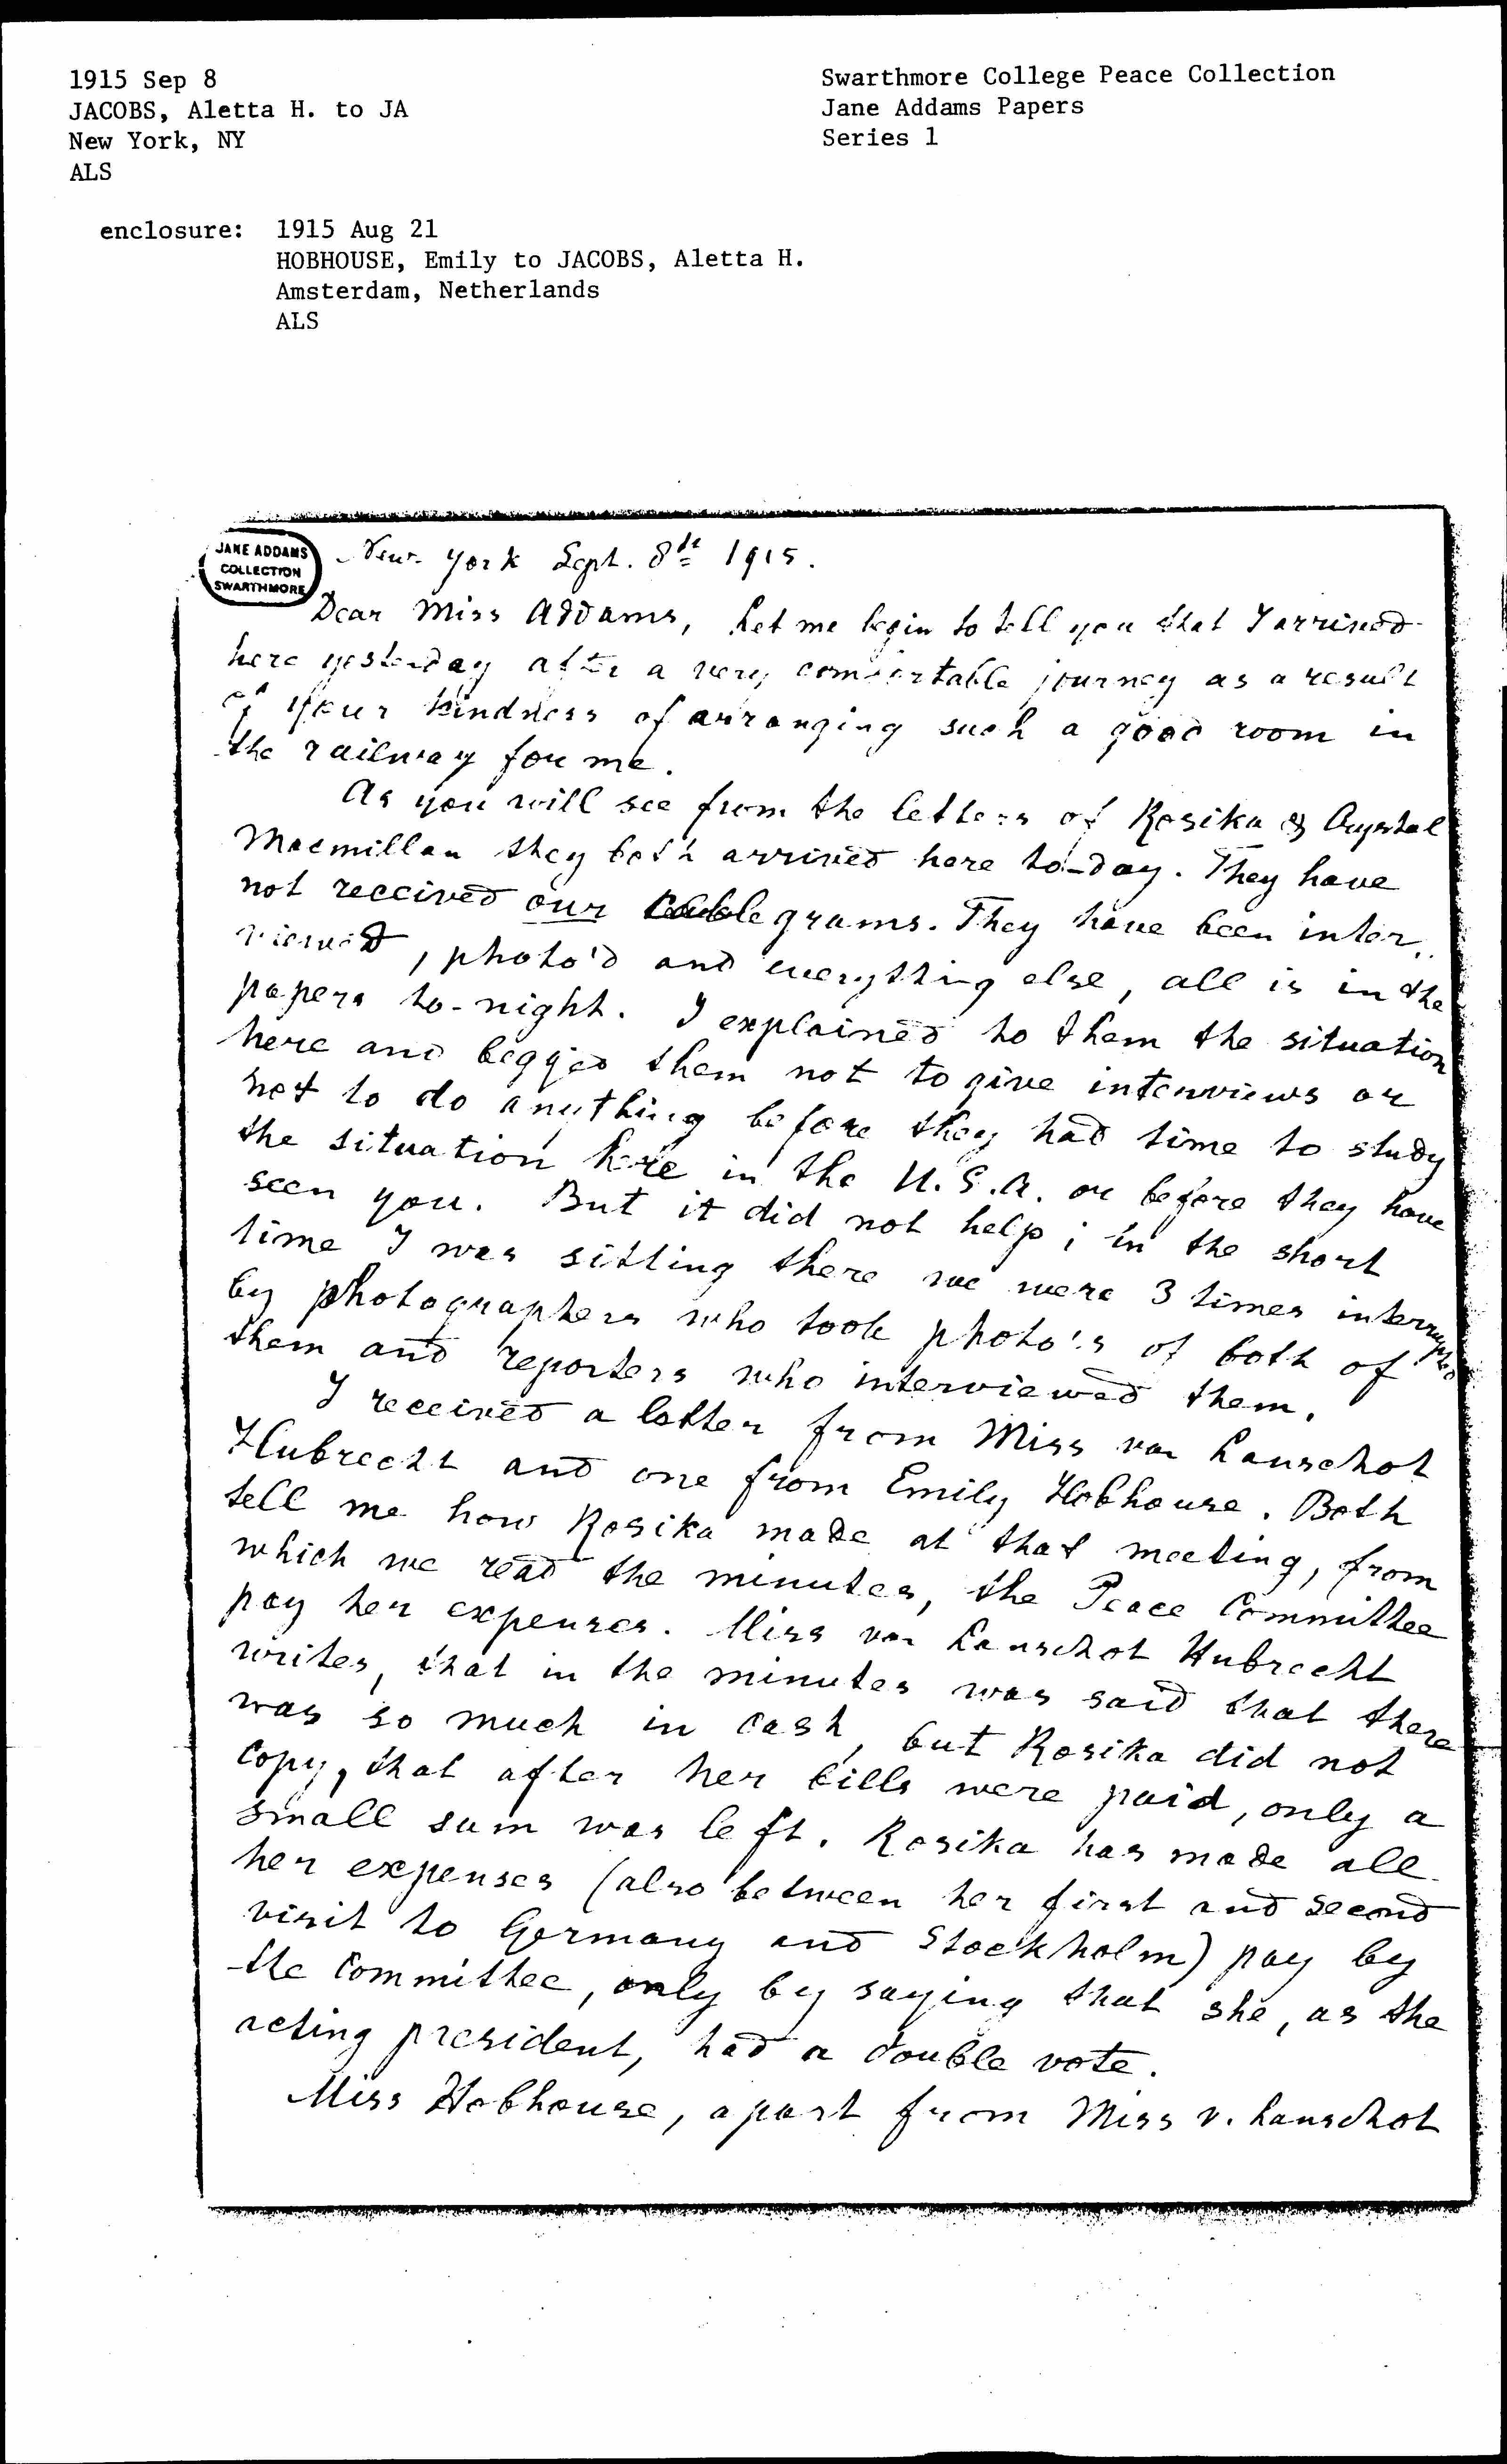 1915 Sep 8
JACOBS, Aletta H. to JA
New York, NY
ALS
Swarthmore College Peace Collection
Jane Addams Papers
Series 1
enclosure: 1915 Aug 21
HOBHOUSE, Emily to JACOBS, Aletta H.
Amsterdam, Netherlands
ALS
JANE ADDAMS
COLLECTION
SWARTHMORE
New-York Sept. 8th 1915.
Dear Miss Addams, Let me begin to tell you that I arrived
here yesterday after a very comfortable journey as a result
of your kindness of arranging such a good room in
the railway for me.
As you will see from the letters of Rosika & Crystal
Macmillan they both arrived here to-day. They have
not received our cablegrams. They have been inter-
viewed, photo'd and everything else, all is in the
papers to-night. I explained to them the situation
here and begged them not to give interviews or
not to do anything before they had time to study
the situation here in the U.S.A. or before they have
seen you. But it did not help; in the short
time I was sitting there we were 3 times interrupted
by photographers who took photo's of both of
them and reporters who interviewed them.
I received a letter from Miss van Lanschot
Hubrecht and one from Emily Hobhouse. Both
tell me how Rosika made at that meeting, from
which we read the minutes, the Peace Committee
pay her expenses. Miss van Lanschot Hubrecht
writes, that in the minutes was said that there
was so much in cash, but Rosika did not
copy, that after her bills were paid, only a
small sum was left. Rosika has made all
her expenses (also between her first and second
visit to Germany and Stockholm) pay by
the Committee, only by saying that she, as the
acting president, had a double vote.
Miss Hobhouse, apart from Miss v. Lanschot